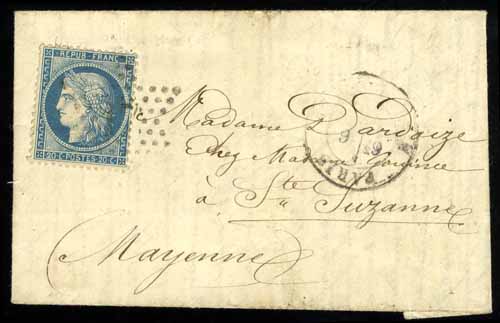 REPUB. FRANC.
20 C. POSTES 20 C.
Madame Dardaize
Chez Madame
à Ste Suzanne
(Mayenne)
PARIS